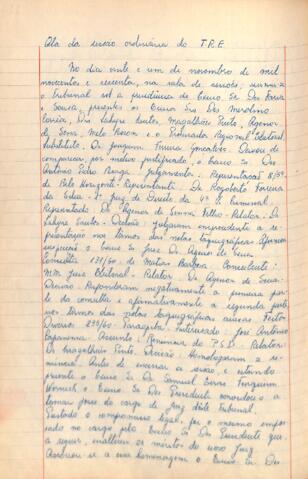 Ata da sessão ordinária do T.R.E.
No dia vinte e um de novembro de mil
novecentos e sessenta, na sala de sessões, reuniu-se
o Tribunal sob a presidência do Exmo. Sr. Des. Faria
e Sousa, presentes os Exmos. Srs. Des. Merolino
Corrêa, Drs. Magalhães Pinto, Agenor
de Sena, Melo e o Procurador Regional Eleitoral,
substituto, Dr. Joaquim Ferreira Gonçalves. Deixou de
comparecer, por motivo justificado, o Exmo. Sr. Des.
Antônio Pedro Braga. Julgamentos: Representação
de Belo Horizonte. Representante: Dr. Rogoberto Ferreira
da Silva. Juiz de Direito da 4ª V. Criminal.
Representado: Dr. Agenor de Senna Filho. Relator: Dr.
Decisão: Julgaram improcedente a re-
presentação nos termos das notas taquigráficas. Afirmou
suspeição o Exmo. Sr. Juiz Dr. Agenor de Sena.
Consulta 131/60 de Mateus Barbosa. Consulente:
MM. Juiz Eleitoral. Relator: Dr. Agenor de Sena.
Decisão: Responderam negativamente a primeira par-
te da consulta e afirmativamente a segunda, pelos
termos das notas taquigráficas anexas. Feitos
Diversos 299/60. Interessado: José Antônio
Assunto: Renúncia do P.S.D. Relator:
Dr. Magalhães Pinto. Decisão: Homologaram a re-
núncia. Antes de encerrar a sessão, e estando
presente o Exmo. Sr. Dr. Samuel
Werneck o Exmo. Sr. Des. Presidente convidou-o a
tomar posse do cargo de Juiz deste Tribunal.
Prestado o compromisso legal, foi o mesmo empos-
sado no cargo pelo Exmo. Sr. Des. Presidente que,
a seguir, enalteceu os méritos do novo Juiz.
Associou-se a essa homenagem o Exmo. Sr. Des.